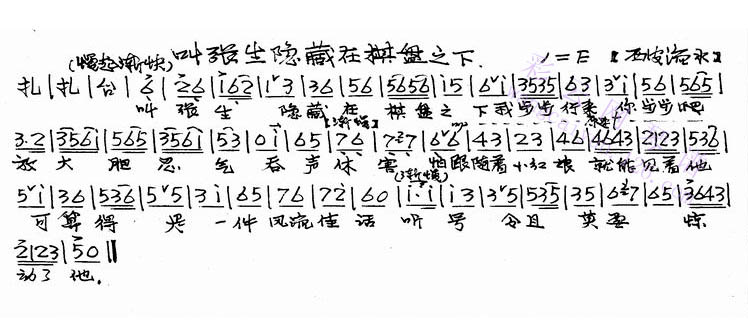 (慢起渐快) 叫张生隐藏在棋盘之下. 1=E 【西皮流水】
扎|扎|台|6|26|162|13|36|56|5656|i5|6i|3535|63|3i|56|565|
叫 张 生 隐 藏 在 棋 盘 之 下 我 步 步 行来 你 步 步 吧
【渐慢】
3.2|3561|565|3561|53|0i|65|76|727|66|43|23|46|4643|2123|536|
放 大 胆 忍 气 吞 声 休 害 怕 跟 随着 小红 娘 就能 见着 他
(渐慢)
5i|36|536|55|3i|65|76|72|60|i·i|i3|35|535|35|627|65|3643|
可 算 得 是 一 件 风 流 佳 话 听 号 令 且 莫要 惊
2123|50‖
动了 他.